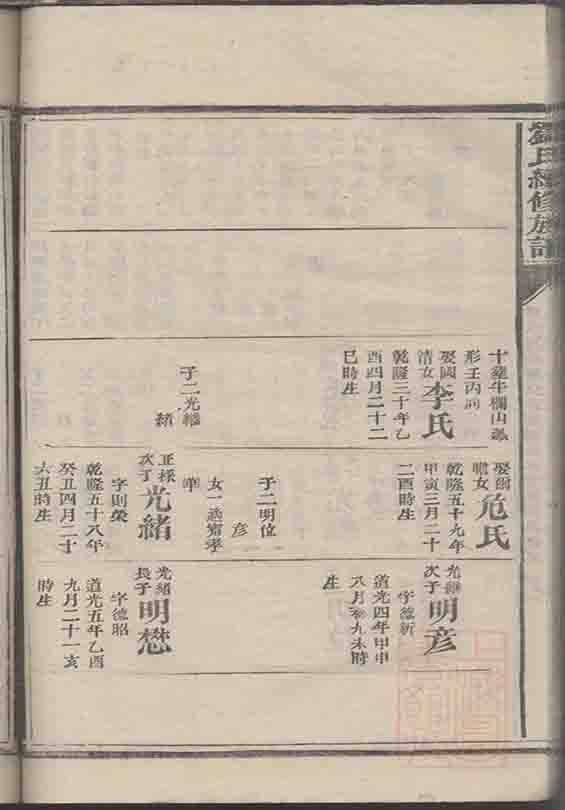 劉氏續修族譜
十葬牛欄山
形壬丙向
娶國
清女
李氏
乾隆三十年乙
酉四月二十二
巳時生
子二光繼
緒
娶
女
危氏
乾隆五十九年
甲寅三月二十
二酉時生
子二明位
彥
女一適甯孝
華
正檖
次子
光緒
字則榮
乾隆五十八年
癸丑四月二十
六丑時生
光繼
次子
明彥
字德新
道光四年甲申
八月初九未時
生
光緒
長子
明懋
字德昭
道光五年乙酉
九月二十一亥
時生